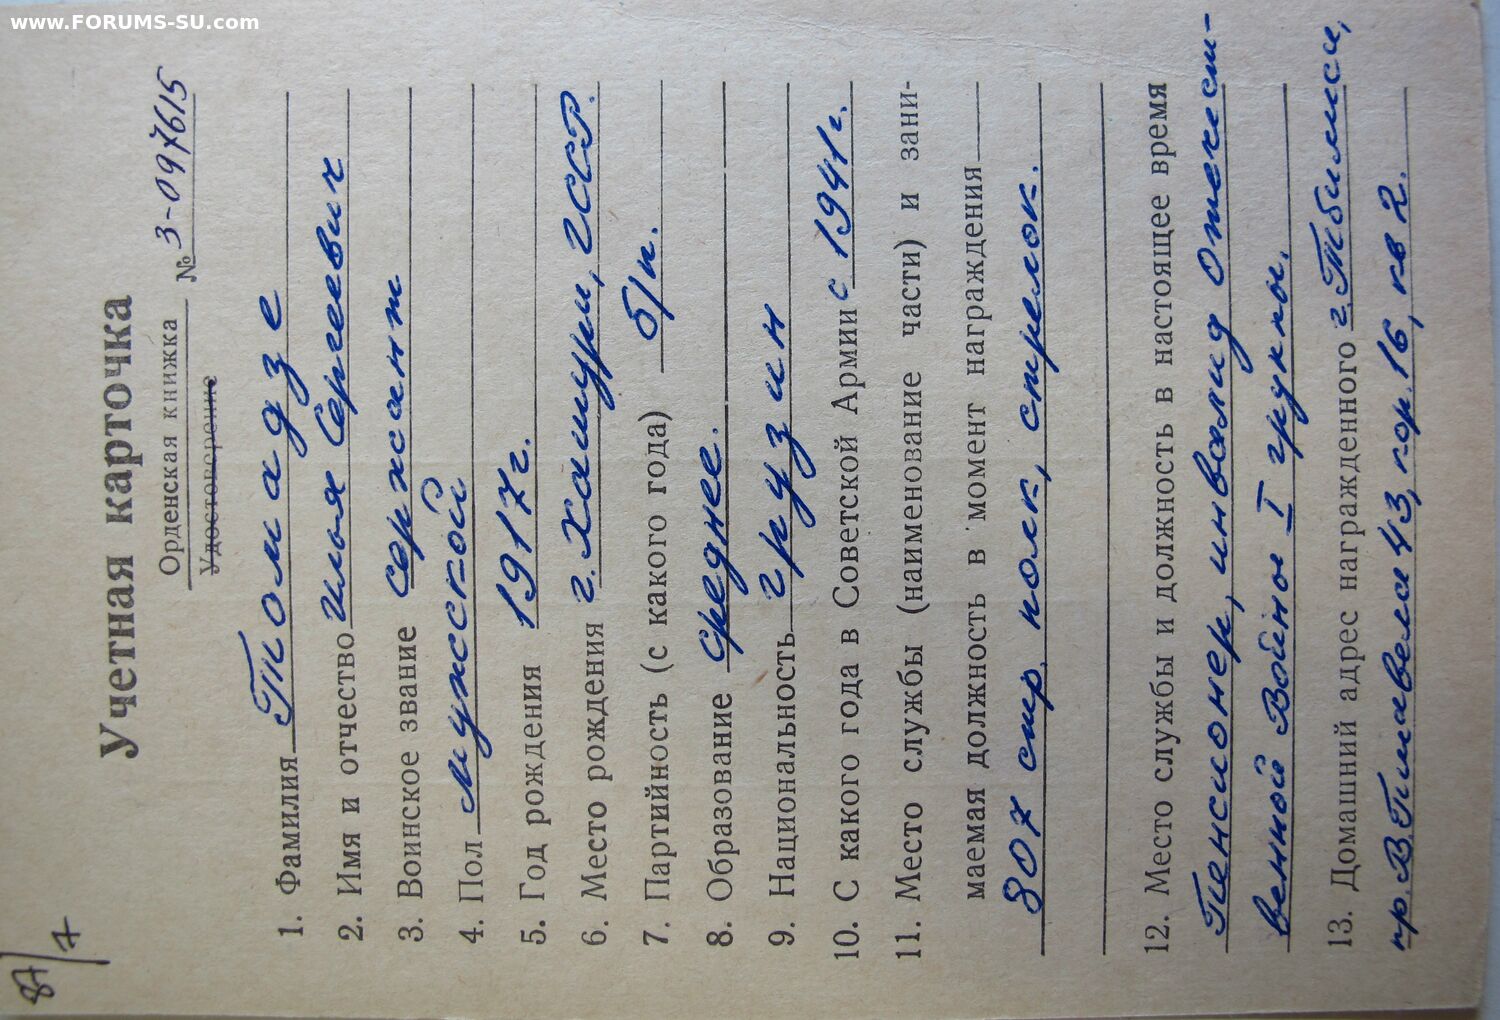 www.FORUMS-SU.com
87/7
Учетная карточка
Орденская книжка
Удостоверение
№ З-097615
1. Фамилия Толмадзе
2. Имя и отчество Илья Сергеевич
3. Воинское звание сержант
4. Пол мужской
5. Год рождения 1917г.
6. Место рождения г. Хашури, ГССР.
7. Партийность (с какого года) б/п.
8. Образование среднее.
9. Национальность грузин
10. С какого года в Советской Армии с 1941г.
11. Место службы (наименование части) и зани-
маемая должность в момент награждения
807 стр. полк, стрелок.
12. Место службы и должность в настоящее время
Пенсионер, инвалид Отечест-
венной Войны I группы.
13. Домашний адрес награжденного г. Тбилиси,
пр. В. Пшавела 43, кор. 16, кв 2.